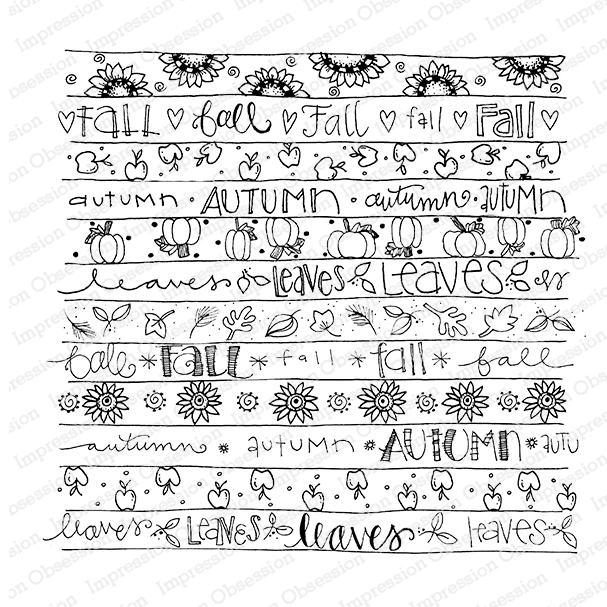 ♡ FaLL ♡ fall ♡ Fall ♡ fall ♡ FaLL ♡
autumn · AUTUMN · autumn · autumn
leaves LEAVES LEAVES
fall * FALL * fall * fall * fall
autumn * autumn * AUTUMN * autu
leaves LEAVES leaves leaves
Impression Obsession